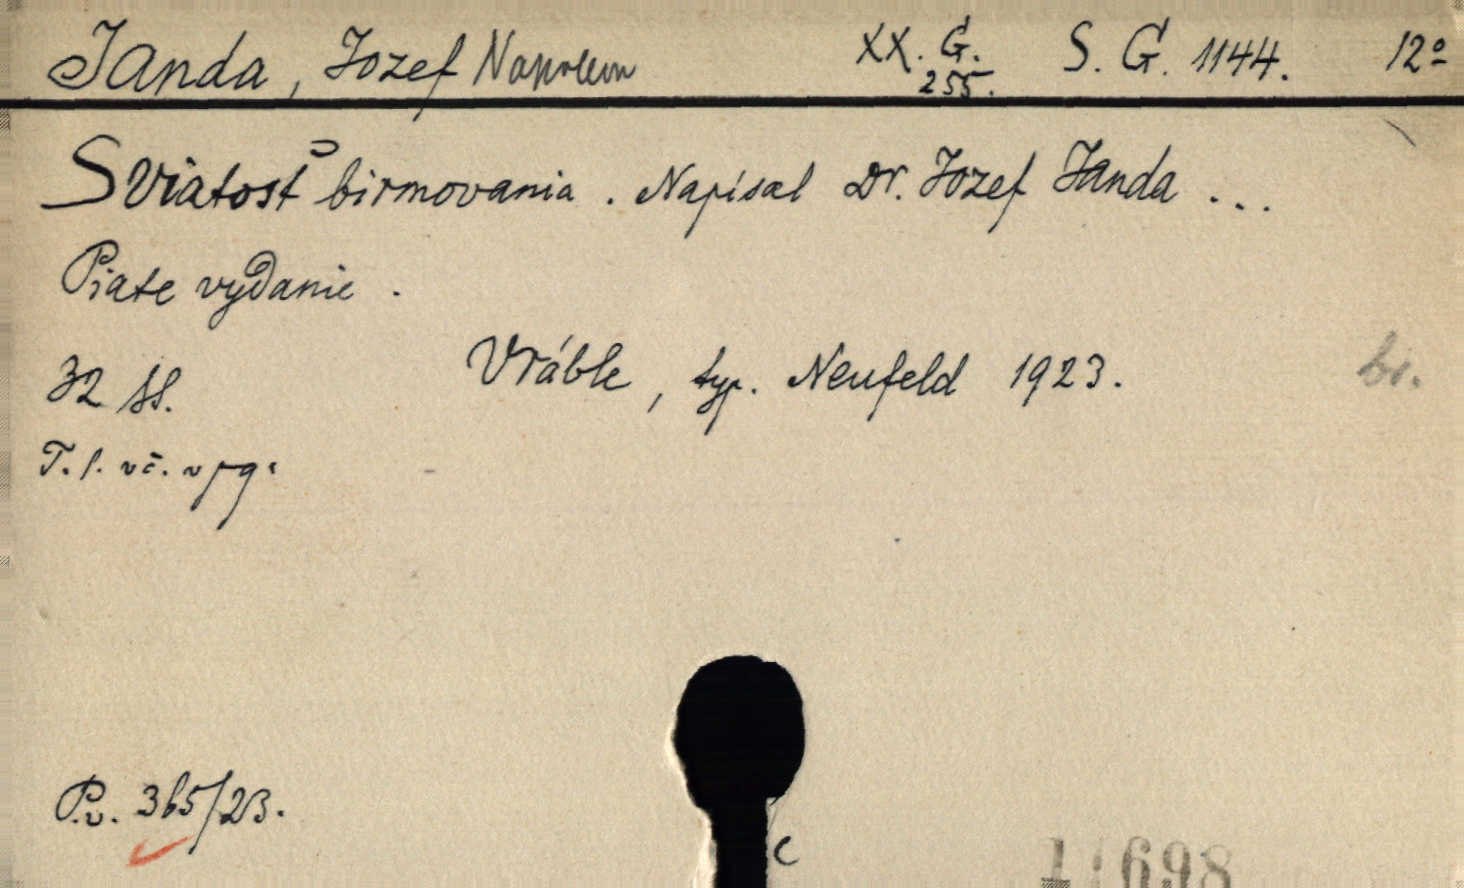 Janda, Jozef Napoleon XX. G. 255. S. G. 1144. 12º
Sviatosť birmovania. Napísal Dr. Jozef Janda ...
Piate vydanie.
Vráble, typ. Neufeld 1923. br.
32 ss.
T. l. vč. v pg.
P.v. 365/23.
C
698